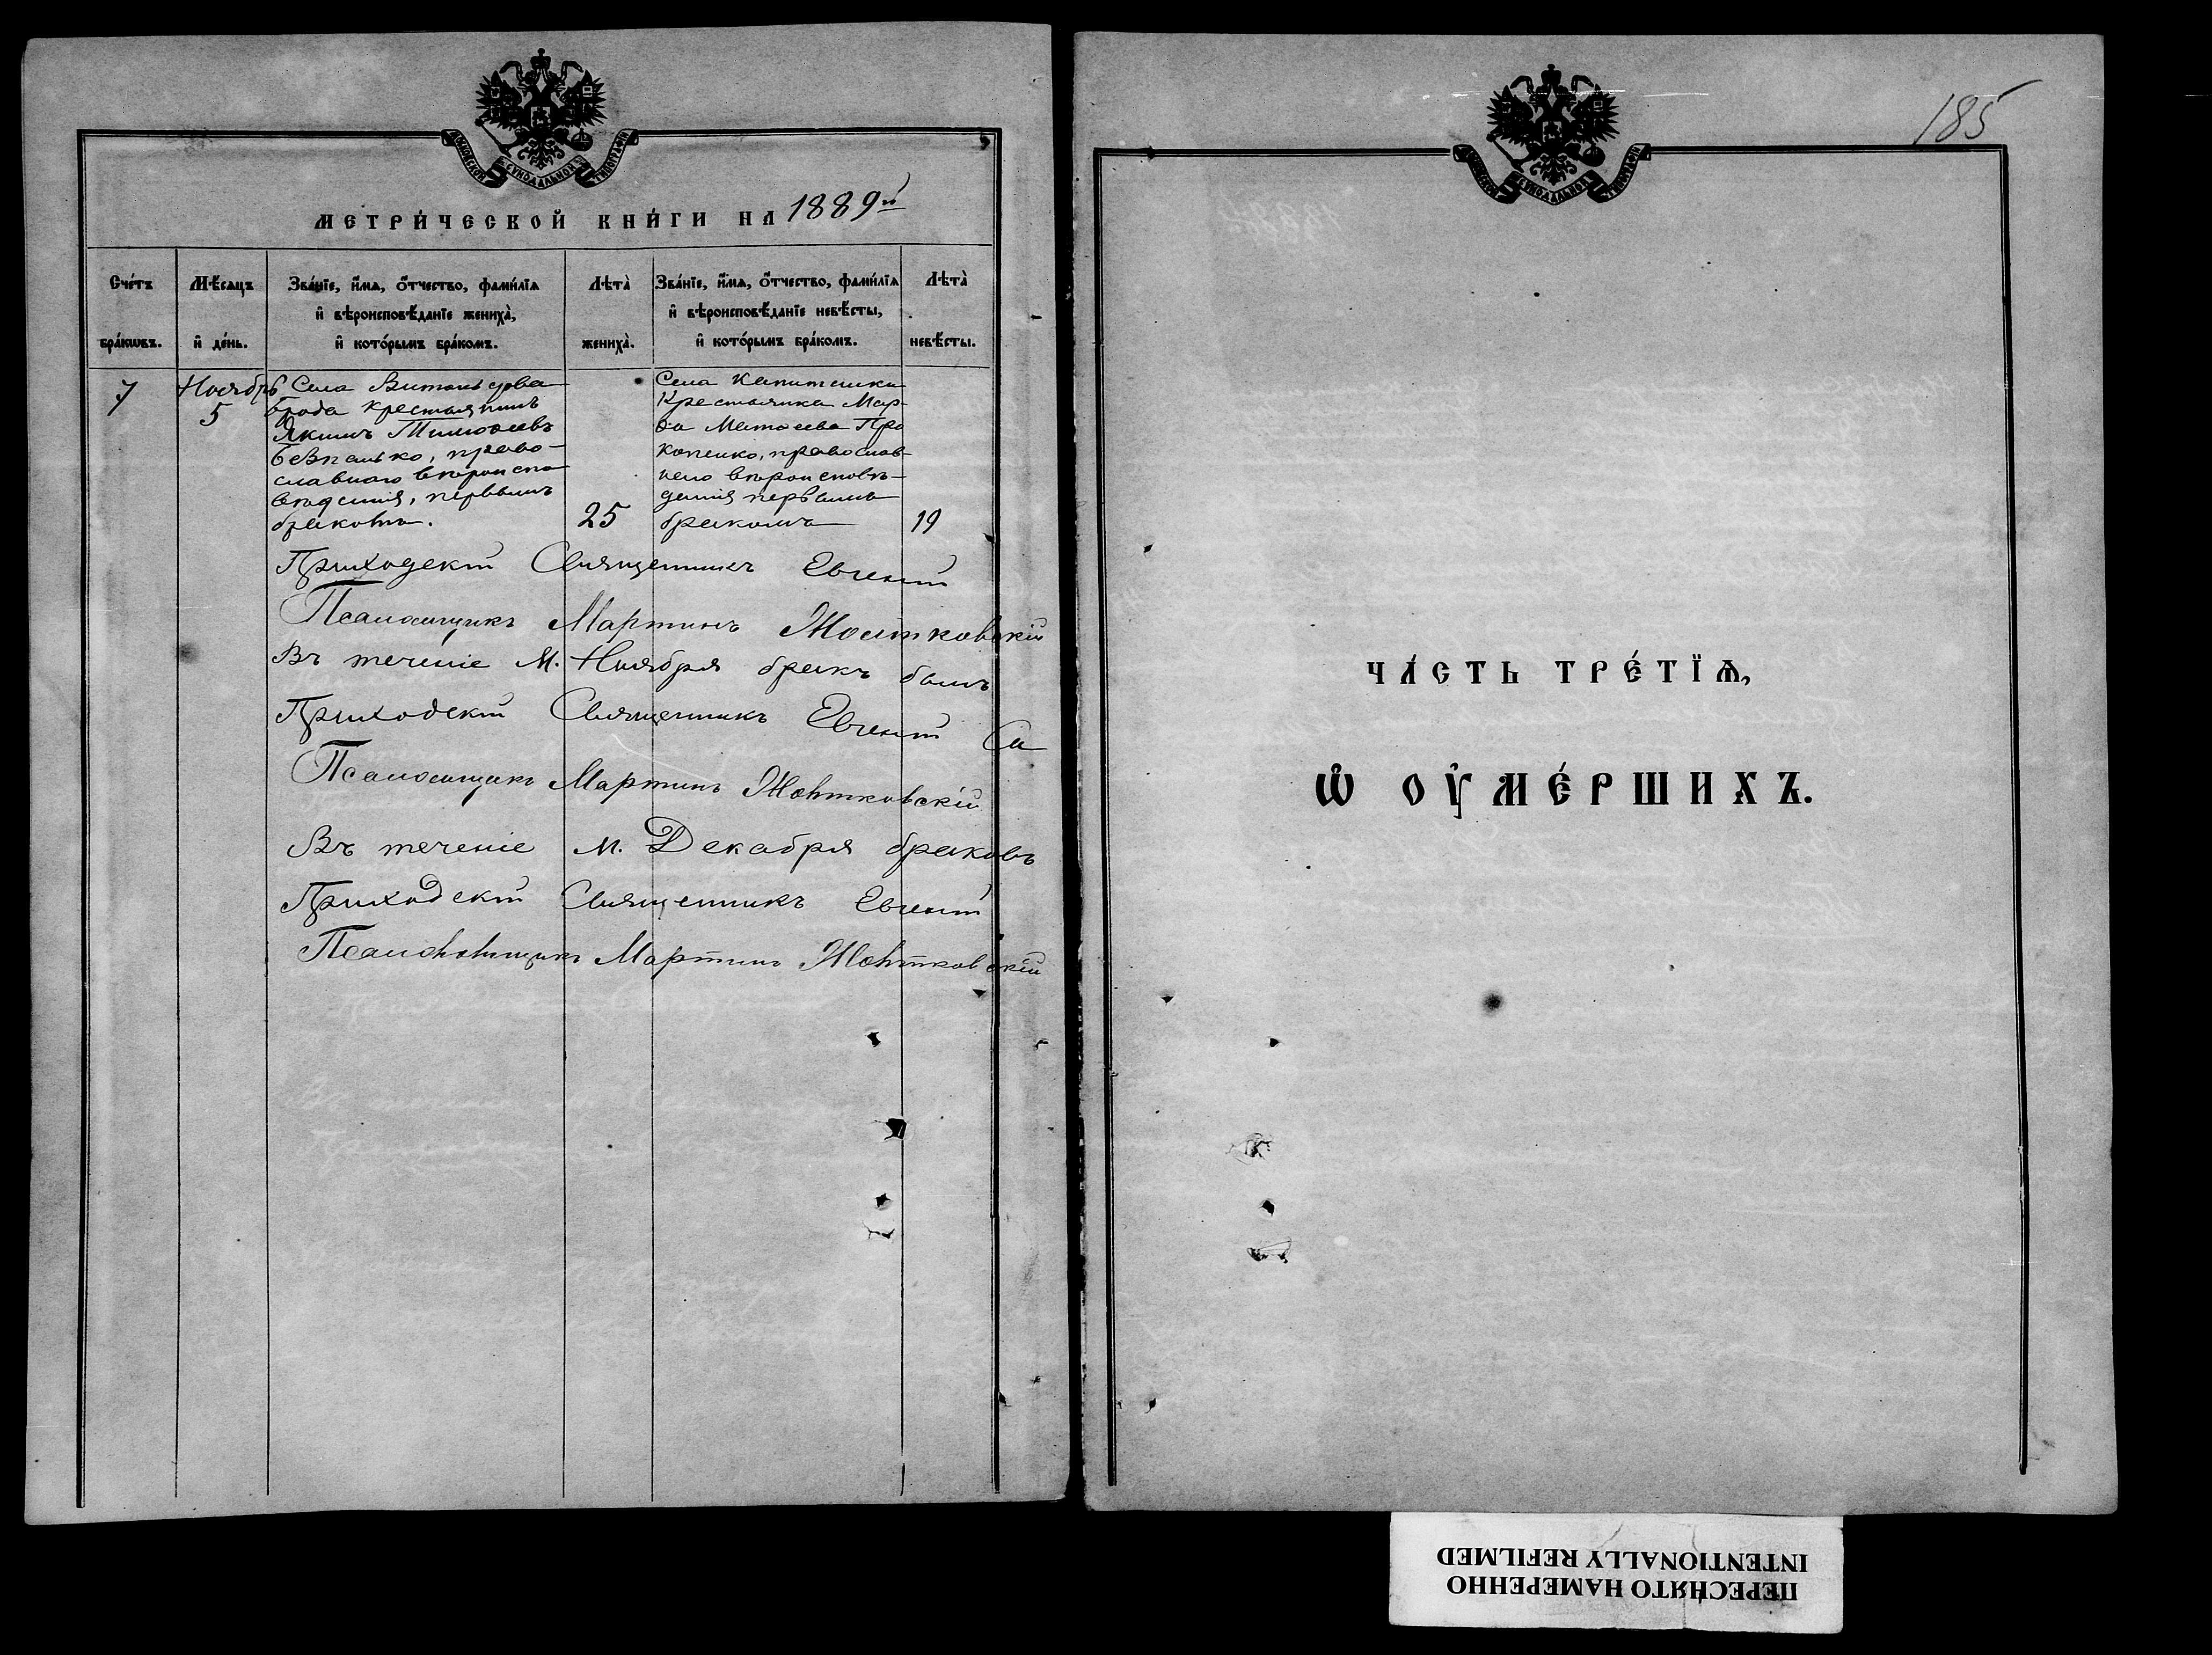 МОСКОВСКОЙ СѴНОДАЛЬНОЙ ТИПОГРАФІИ
МЕТРИ́ЧЕСКОЙ КНИ́ГИ НА 1889й
Сче́тъ бра́кѡвъ.
Мѣ́сяцъ и҆ де́нь.
Зва́нїе, и҆́мѧ, ѻ҆́тчество, фами́лїѧ
и҆ вѣроисповѣ́данїе жениха̀,
и҆ кото́рымъ бра́комъ.
Лѣта̀ жениха̀.
Зва́нїе, и҆́мѧ, ѻ҆́тчество, фами́лїѧ
и҆ вѣроисповѣ́данїе невѣ́сты,
и҆ кото́рымъ бра́комъ.
Лѣта̀ невѣ́сты.
7
Ноябрь
5
Села Витачева
брода крестьянинъ
Якимъ Тимоѳеевъ
Безпалько, право-
славнаго вѣроиспо
вѣденія, первымъ
бракомъ.
25
Села Капитанки
Крестьянка Мар-
ѳа Матѳеева Про
копенко, православ-
наго вѣроисповѣ-
данія первымъ
бракомъ
19
Приходскій Священникъ Евгеній
Псаломщикъ Мартинъ Жолтковскій
Въ теченіе М. Ноября бракъ былъ
Приходскій Священникъ Евгеній Са
Псаломщикъ Мартинъ Жолтковскій
Въ теченіе м. Декабря браковъ
Приходскій Священникъ Евгеній
Псаломщикъ Мартинъ Жолтковскій
МОСКОВСКОЙ СѴНОДАЛЬНОЙ ТИПОГРАФІИ
185
ЧА́СТЬ ТРЕ́ТЇѦ,
Ѡ҆ ОУ҆МЕ́РШИХЪ.
ПЕРЕСНЯТО НАМЕРЕННО
INTENTIONALLY REFILMED